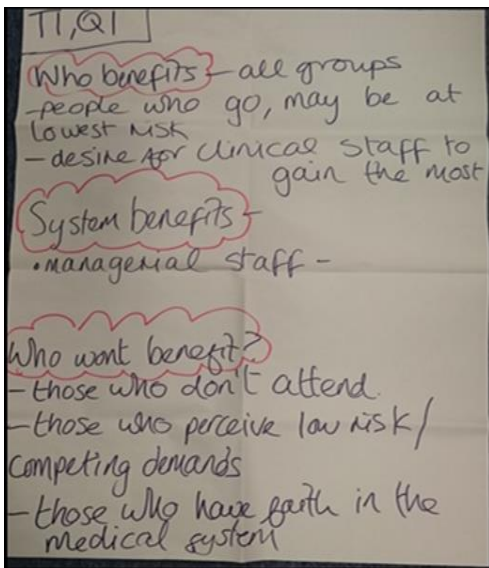 T1, Q1
Who benefits - all groups
- people who go, may be at
lowest risk
- desire for clinical staff to
gain the most
System benefits -
• managerial staff -
Who wont benefit?
- those who don't attend.
- those who perceive low risk/
competing demands
- those who have faith in the
medical system